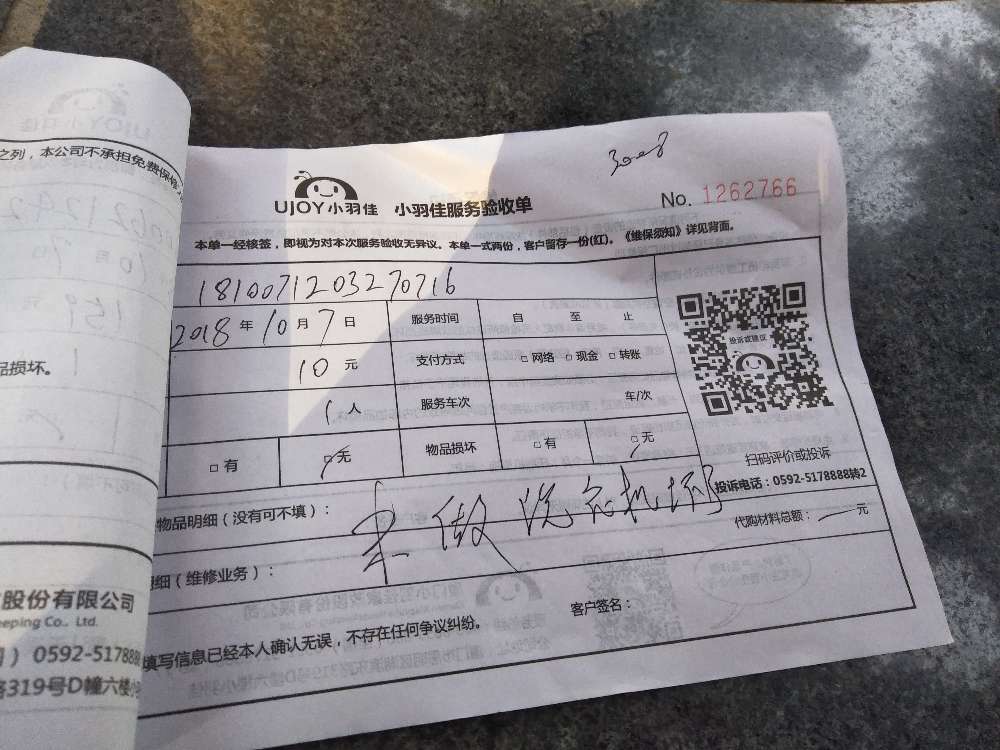 之列，本公司不承担免费保修
10月7
159元
1
品损坏。
股份有限公司
eeping Co., Ltd.
0592-5178888
路319号D幢六楼小
3008
UJOY小羽佳 小羽佳服务验收单
No. 1262766
本单一经核签，即视为对本次服务验收无异议。本单一式两份，客户留存一份(红)。《维保须知》详见背面。
1810071203270716
2018年10月7日 服务时间 自 至 止
10元 支付方式 □网络 □现金 □转账
1人 服务车次 车/次
□有 □无 物品损坏 □有 □无
投诉或建议
扫码评价或投诉
投诉电话：0592-5178888转2
物品明细（没有可不填）：
未做 洗衣机坏
代购材料总额： 元
明细（维修业务）：
客户签名：
填写信息已经本人确认无误，不存在任何争议纠纷。